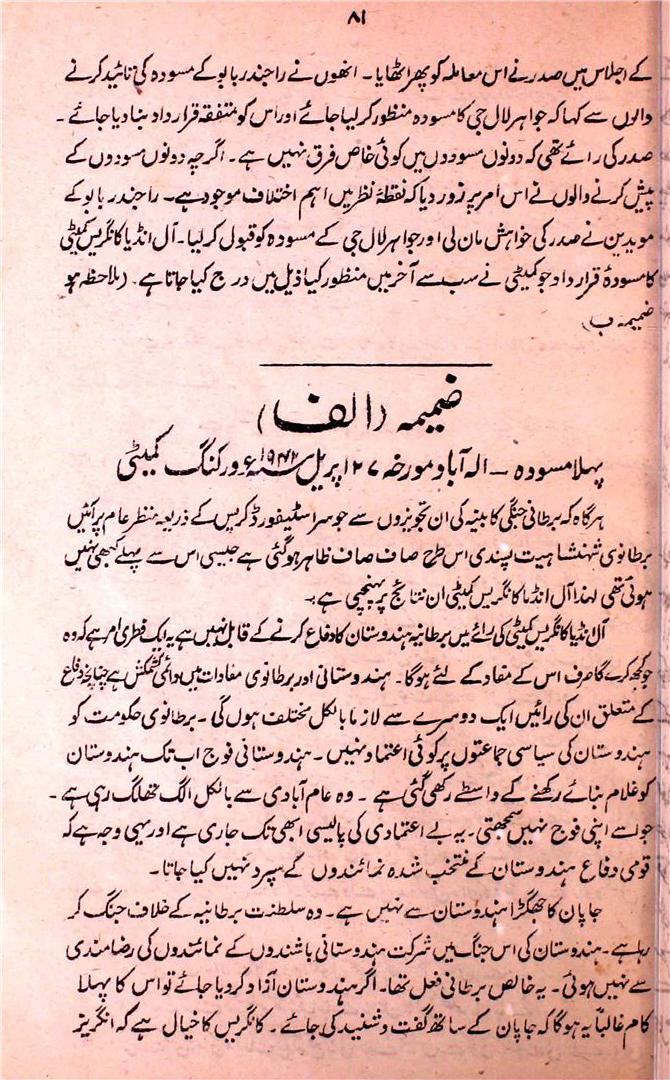 ۸۱
کے اجلاس میں صدر نے اس معاملہ کو پھر اٹھایا۔ انھوں نے راجندر بابو کے مسودہ کی تائید کرنے
والوں سے کہا کہ جواہر لال جی کا مسودہ منظور کر لیا جائے اور اس کو متفقہ قرار داد بنا دیا جائے۔
صدر کی رائے تھی کہ دونوں مسودوں میں کوئی خاص فرق نہیں ہے۔ اگرچہ دونوں مسودوں کے
پیش کرنے والوں نے اس امر پر زور دیا کہ نقطۂ نظر میں اہم اختلاف موجود ہے۔ راجندر بابو کے
مویدین نے صدر کی خواہش مان لی اور جواہر لال جی کے مسودہ کو قبول کر لیا۔ آل انڈیا کانگریس کمیٹی
کا مسودۂ قرار داد جو کمیٹی نے سب سے آخر میں منظور کیا ذیل میں درج کیا جاتا ہے۔ (ملاحظہ ہو
ضمیمہ ب)
ضمیمہ (الف)
پہلا مسودہ – الہ آباد مورخہ ۲۷ اپریل ۱۹۴۲ء ورکنگ کمیٹی
ہرگاہ کہ برطانی جنگی کابینہ کی ان تجویزوں سے جو سر اسٹیفورڈ کرپس کے ذریعہ منظر عام پر آئیں
برطانوی شہنشاہیت پسندی اس طرح صاف صاف ظاہر ہو گئی ہے جیسی اس سے پہلے کبھی نہیں
ہوئی تھی لہذا آل انڈیا کانگریس کمیٹی ان نتائج پر پہنچی ہے:۔
آل انڈیا کانگریس کمیٹی کی رائے میں برطانیہ ہندوستان کا دفاع کرنے کے قابل نہیں ہے یہ ایک فطری امر ہے کہ وہ
جو کچھ کرے گا صرف اس کے مفاد کے لئے ہوگا۔ ہندوستانی اور برطانوی مفادات میں دائمی کشمکش ہے چنانچہ دفاع
کے متعلق ان کی رائیں ایک دوسرے سے لازما بالکل مختلف ہوں گی۔ برطانوی حکومت کو
ہندوستان کی سیاسی جماعتوں پر کوئی اعتماد نہیں۔ ہندوستانی فوج اب تک ہندوستان
کو غلام بنائے رکھنے کے واسطے رکھی گئی ہے۔ وہ عام آبادی سے بالکل الگ تھلگ رہی ہے۔
جو اسے اپنی فوج نہیں سمجھتی۔ یہ بے اعتمادی کی پالیسی ابھی تک جاری ہے اور یہی وجہ ہے کہ
قومی دفاع ہندوستان کے منتخب شدہ نمائندوں کے سپرد نہیں کیا جاتا۔
جاپان کا جھگڑا ہندوستان سے نہیں ہے۔ وہ سلطنت برطانیہ کے خلاف جنگ کر
رہا ہے۔ ہندوستان کی اس جنگ میں شرکت ہندوستانی باشندوں کے نمائندوں کی رضامندی
سے نہیں ہوئی۔ یہ خالص برطانی فعل تھا۔ اگر ہندوستان آزاد کر دیا جائے تو اس کا پہلا
کام غالباً یہ ہوگا کہ جاپان کے ساتھ گفت و شنید کی جائے۔ کانگریس کا خیال ہے کہ انگریز